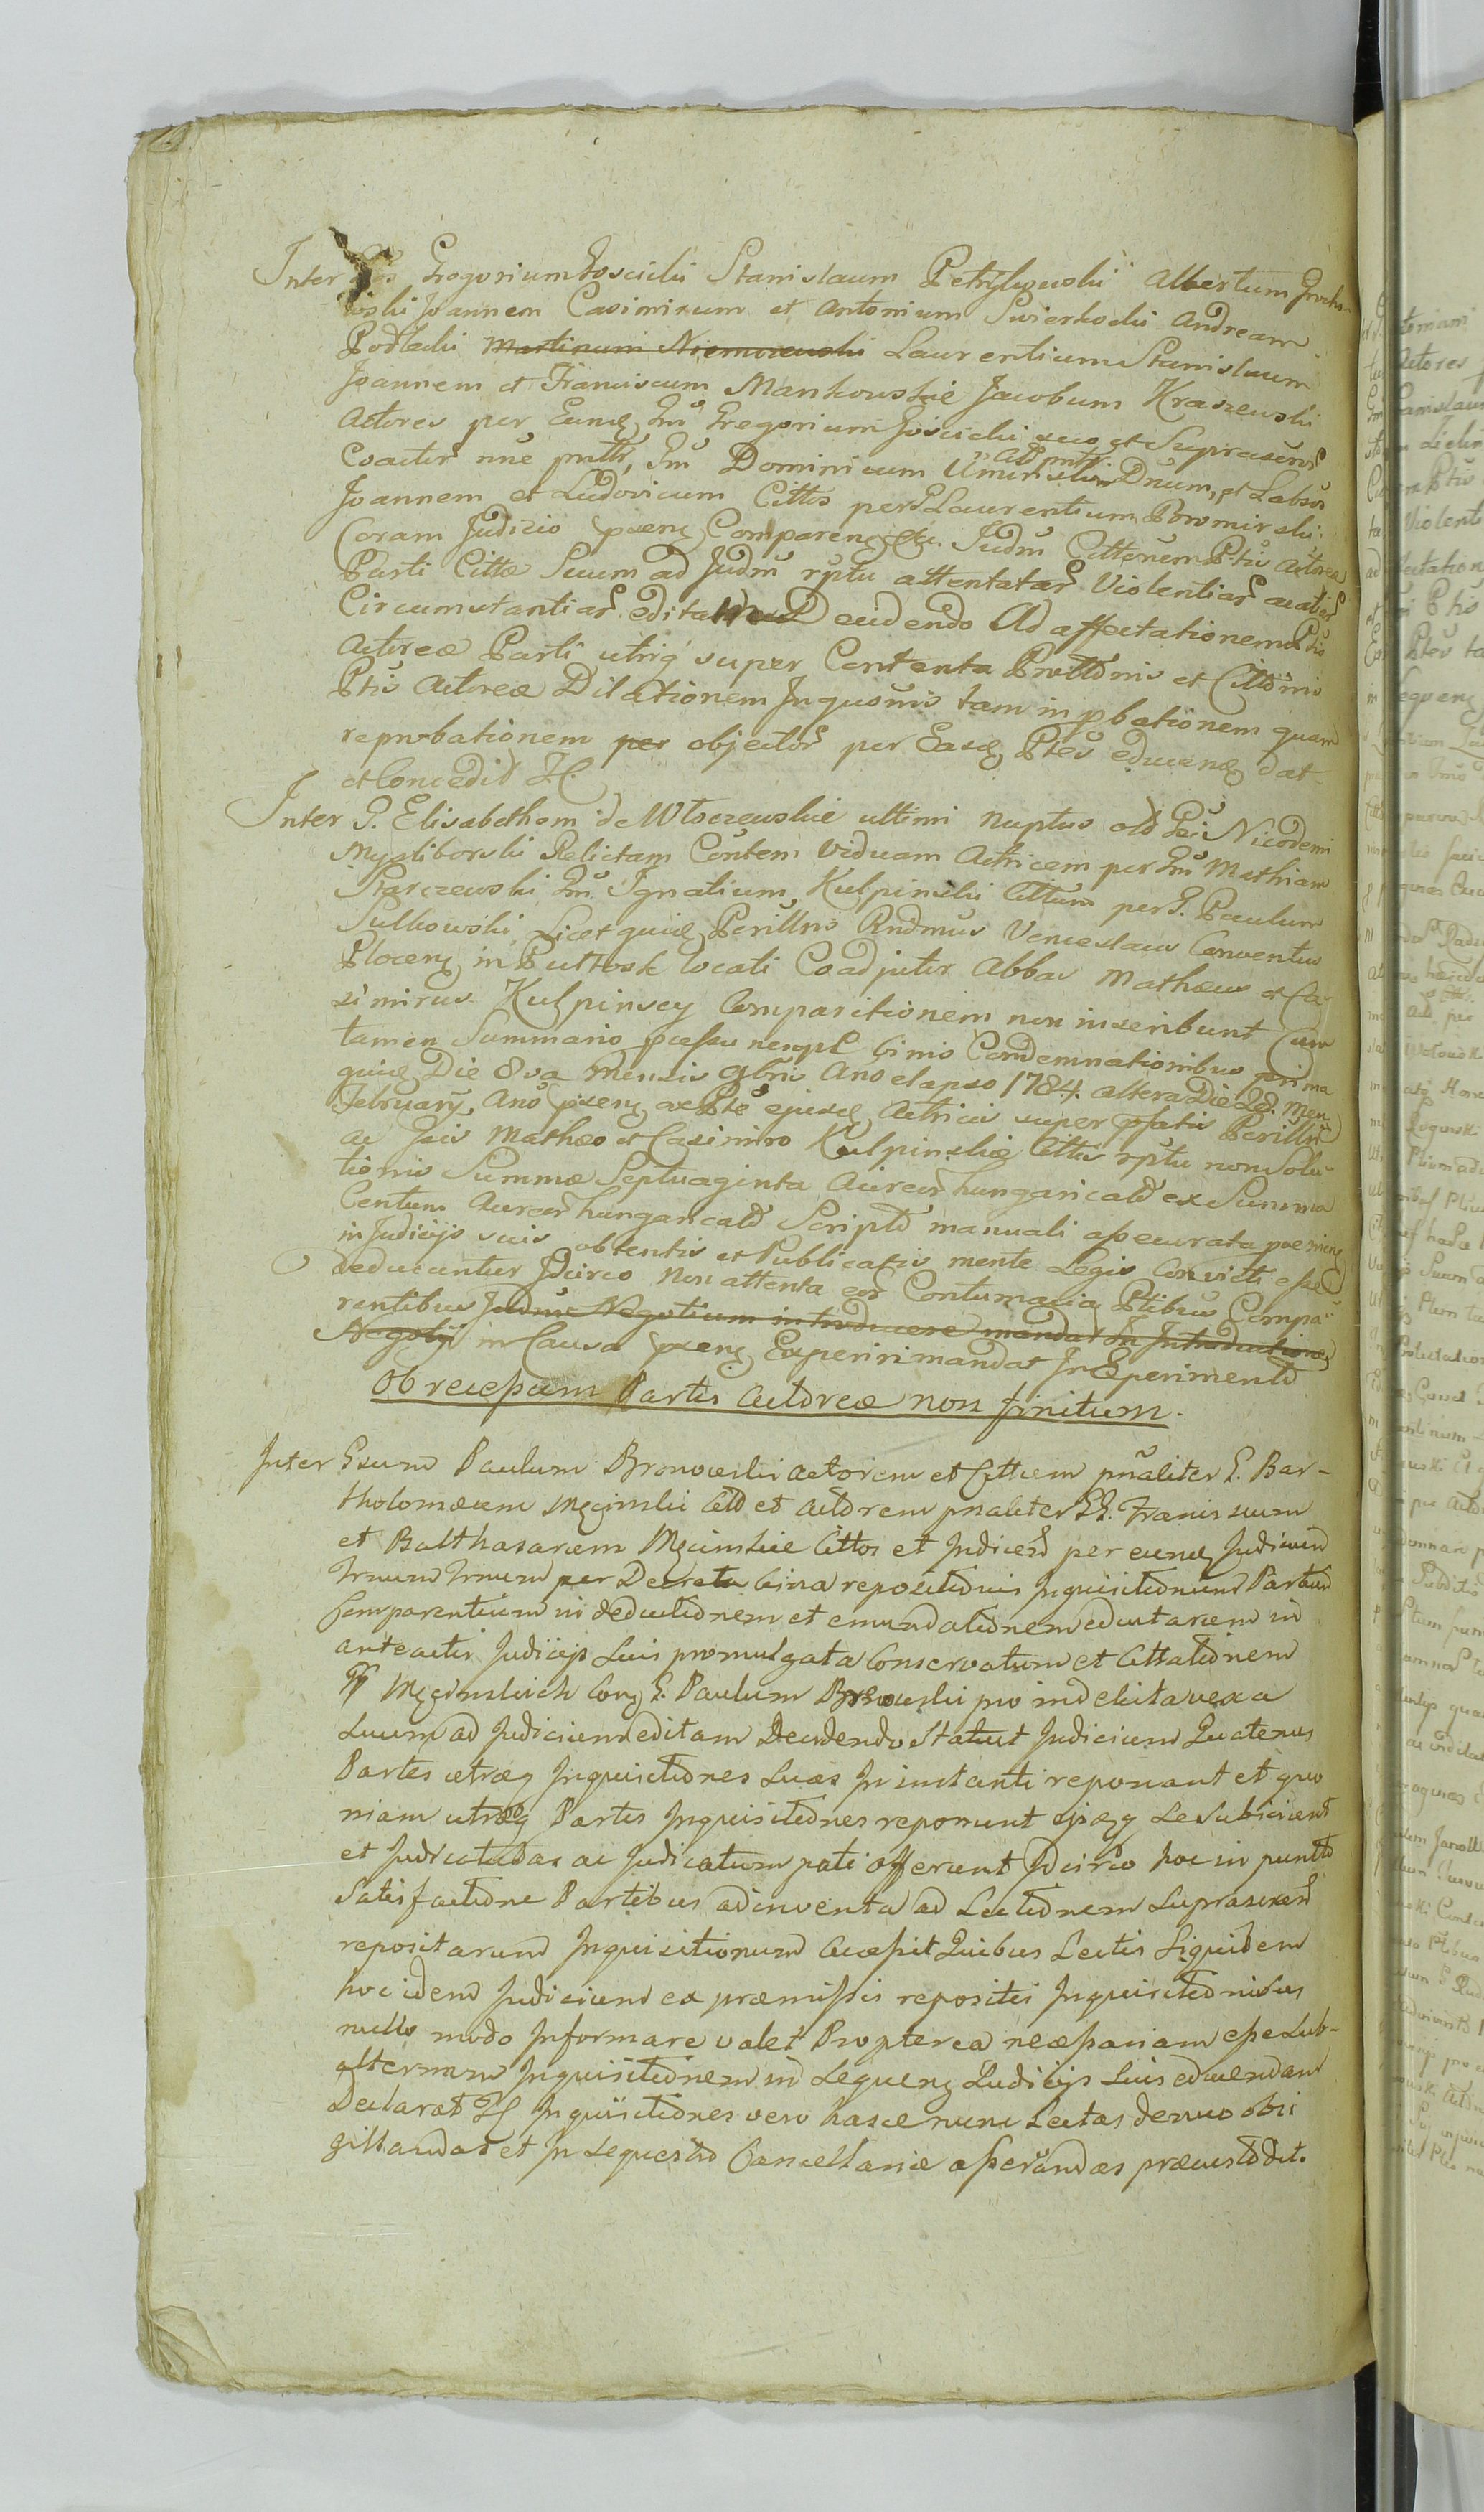 Inter Gregorium Goscicki Stanislaum Petrykowski Albertum Grocho-
wski Joannem Casimirum et Antonium Swierkocki Andream
Podlecki Martinum Niemirowski Laurentium Stanislaum
Joannem et Franciscum Mankowskie Jacobum Kraszewski
Actores per Eund Gnū Gregorium Goscicki suo et Suprascrips
Coactor nne pntt, Gnū Dominicum Uminski ad pntt Dnum, et Labor
Joannem et Ludovicum Cittos per G Laurentium Boromirski
Coram Judicio pxeng Compareng etc. Judm Cittonem Ptis Actorea
Parti Cittæ Suum ad Judm rptu attentatar Violentiar aliar
Circumstantiar editam Decidendo Ad affectationem Ptis
Actoreæ Parti utriq super Contenta Prottonis et Cittonis
Ptis Actoreæ Dilationem Inquonis tam in pbationem quam
reprobationem per objector per Easd Ptes educeng dat
et Concedit H.
Inter G. Elisabetham de Wloczewskie ultimi nuptus old Gsi Nicodemi
Mysliborski Relictam Contem Viduam Actricem per Gnū Mathiam
Starczewski Gnū Ignatium Kulpinski Cittum per G. Paulum
Sulkowski Licet quid Perillris Rndmus Venceslaus Conventus
Ploceng in Pultosk locati Coadjutor Abbas Mathæus et Ca-
simirus Kulpinscy Comparitionem non inscribunt Cum
tamen Summario pcessu nempe binis Condemnationibus prima
quid Die 8va Mensis 9bris Ano elapso 1784. altera Die 22. Men
February, Ano pxeng ex Pte ejusd Actricis super pfatis Perillri
ac Gsis Mathæo et Casimiro Kulpinskie Cittis rptu non Solu-
tionis Summæ Septuaginta Aureor hungaricald ex Summa
Centum Aureor hungarcald Scripto manuali assecurata proveniens
in Judicijs suis obtentis et Publicatis mente Legis Convicti esse
deducuntur Idcirco Non attenta eor Contumacia Ptibus Compa-
rentibus Judm Negotium introducere mandat In Introductione
Negotij in Causa pxeng Experiri mandat In Experimento
Ob recessum Partis Actoreæ non finitum.
Inter Gsum Paulum Bronowski Actorem et Cittum pnaliter G. Bar-
tholomæum Mycinski Citt et Actorem pnaliter GG. Franciscum
et Balthasarem Mycinskie Cittos et Judicium per eund Judicium
Trnum Trnum per Decreta bina repositionis Inquisitionum Partium
Comparentium in deductionem et emundationem eductarum in
anteactis Judicijs Suis promulgata Conservatum et Cittationem
GG Mycinskich Cong G. Paulum Bronowski pro indebita vexa
Suum ad Judicium editam Decidendo Statuit Judicium Quatenus
Partes utræq Inquisitiones Suas In instanti reponant et quo
niam utræq Partes Inquisitiones reponunt ijsq Se Subiiciunt
et Judicatudas ac Judicatum pati offerunt Idcirco hoc in puncto
Satisfactione Partibus adinventa ad Lectionem Suprascript
repositarum Inquisitionum accessit Quibus Lectis Siquidem
hoc idem Judicium ex præmissis repositis Inquisitionibus
nullo modo Informare valet Propterea necessariam esse Sub-
alternam Inquisitionem in Sequeng Judicijs Suis educendam
Declarat H Inquisitiones vero hasce nunc Lectas denuo obsi
gillandas et In Sequestro Cancellariæ asservandas præcustodit.